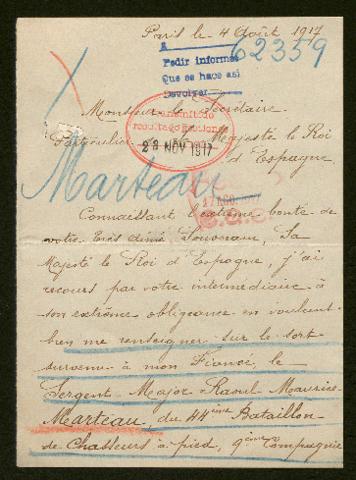 Paris le 4 Août 1917
62359
A
Pedir informes
Que se hace así
Devolver
Monsieur le Secrétaire
Particulier de Sa Majesté le Roi
d'Espagne
Transmitido
resultado gestiones
28 NOV 1917
Marteau
17 AGO. 1917
Connaissant l'extrême bonté de
votre très aimé Souverain, Sa
Majesté le Roi d'Espagne, j'ai
recours par votre intermédiaire à
son extrême obligeance en voulant
bien me renseigner sur le sort
survenu à mon Fiancé, le
Sergent Major Raoul Maurice
Marteau, du 44ème Bataillon
de Chasseurs à pied, 9ème Compagnie